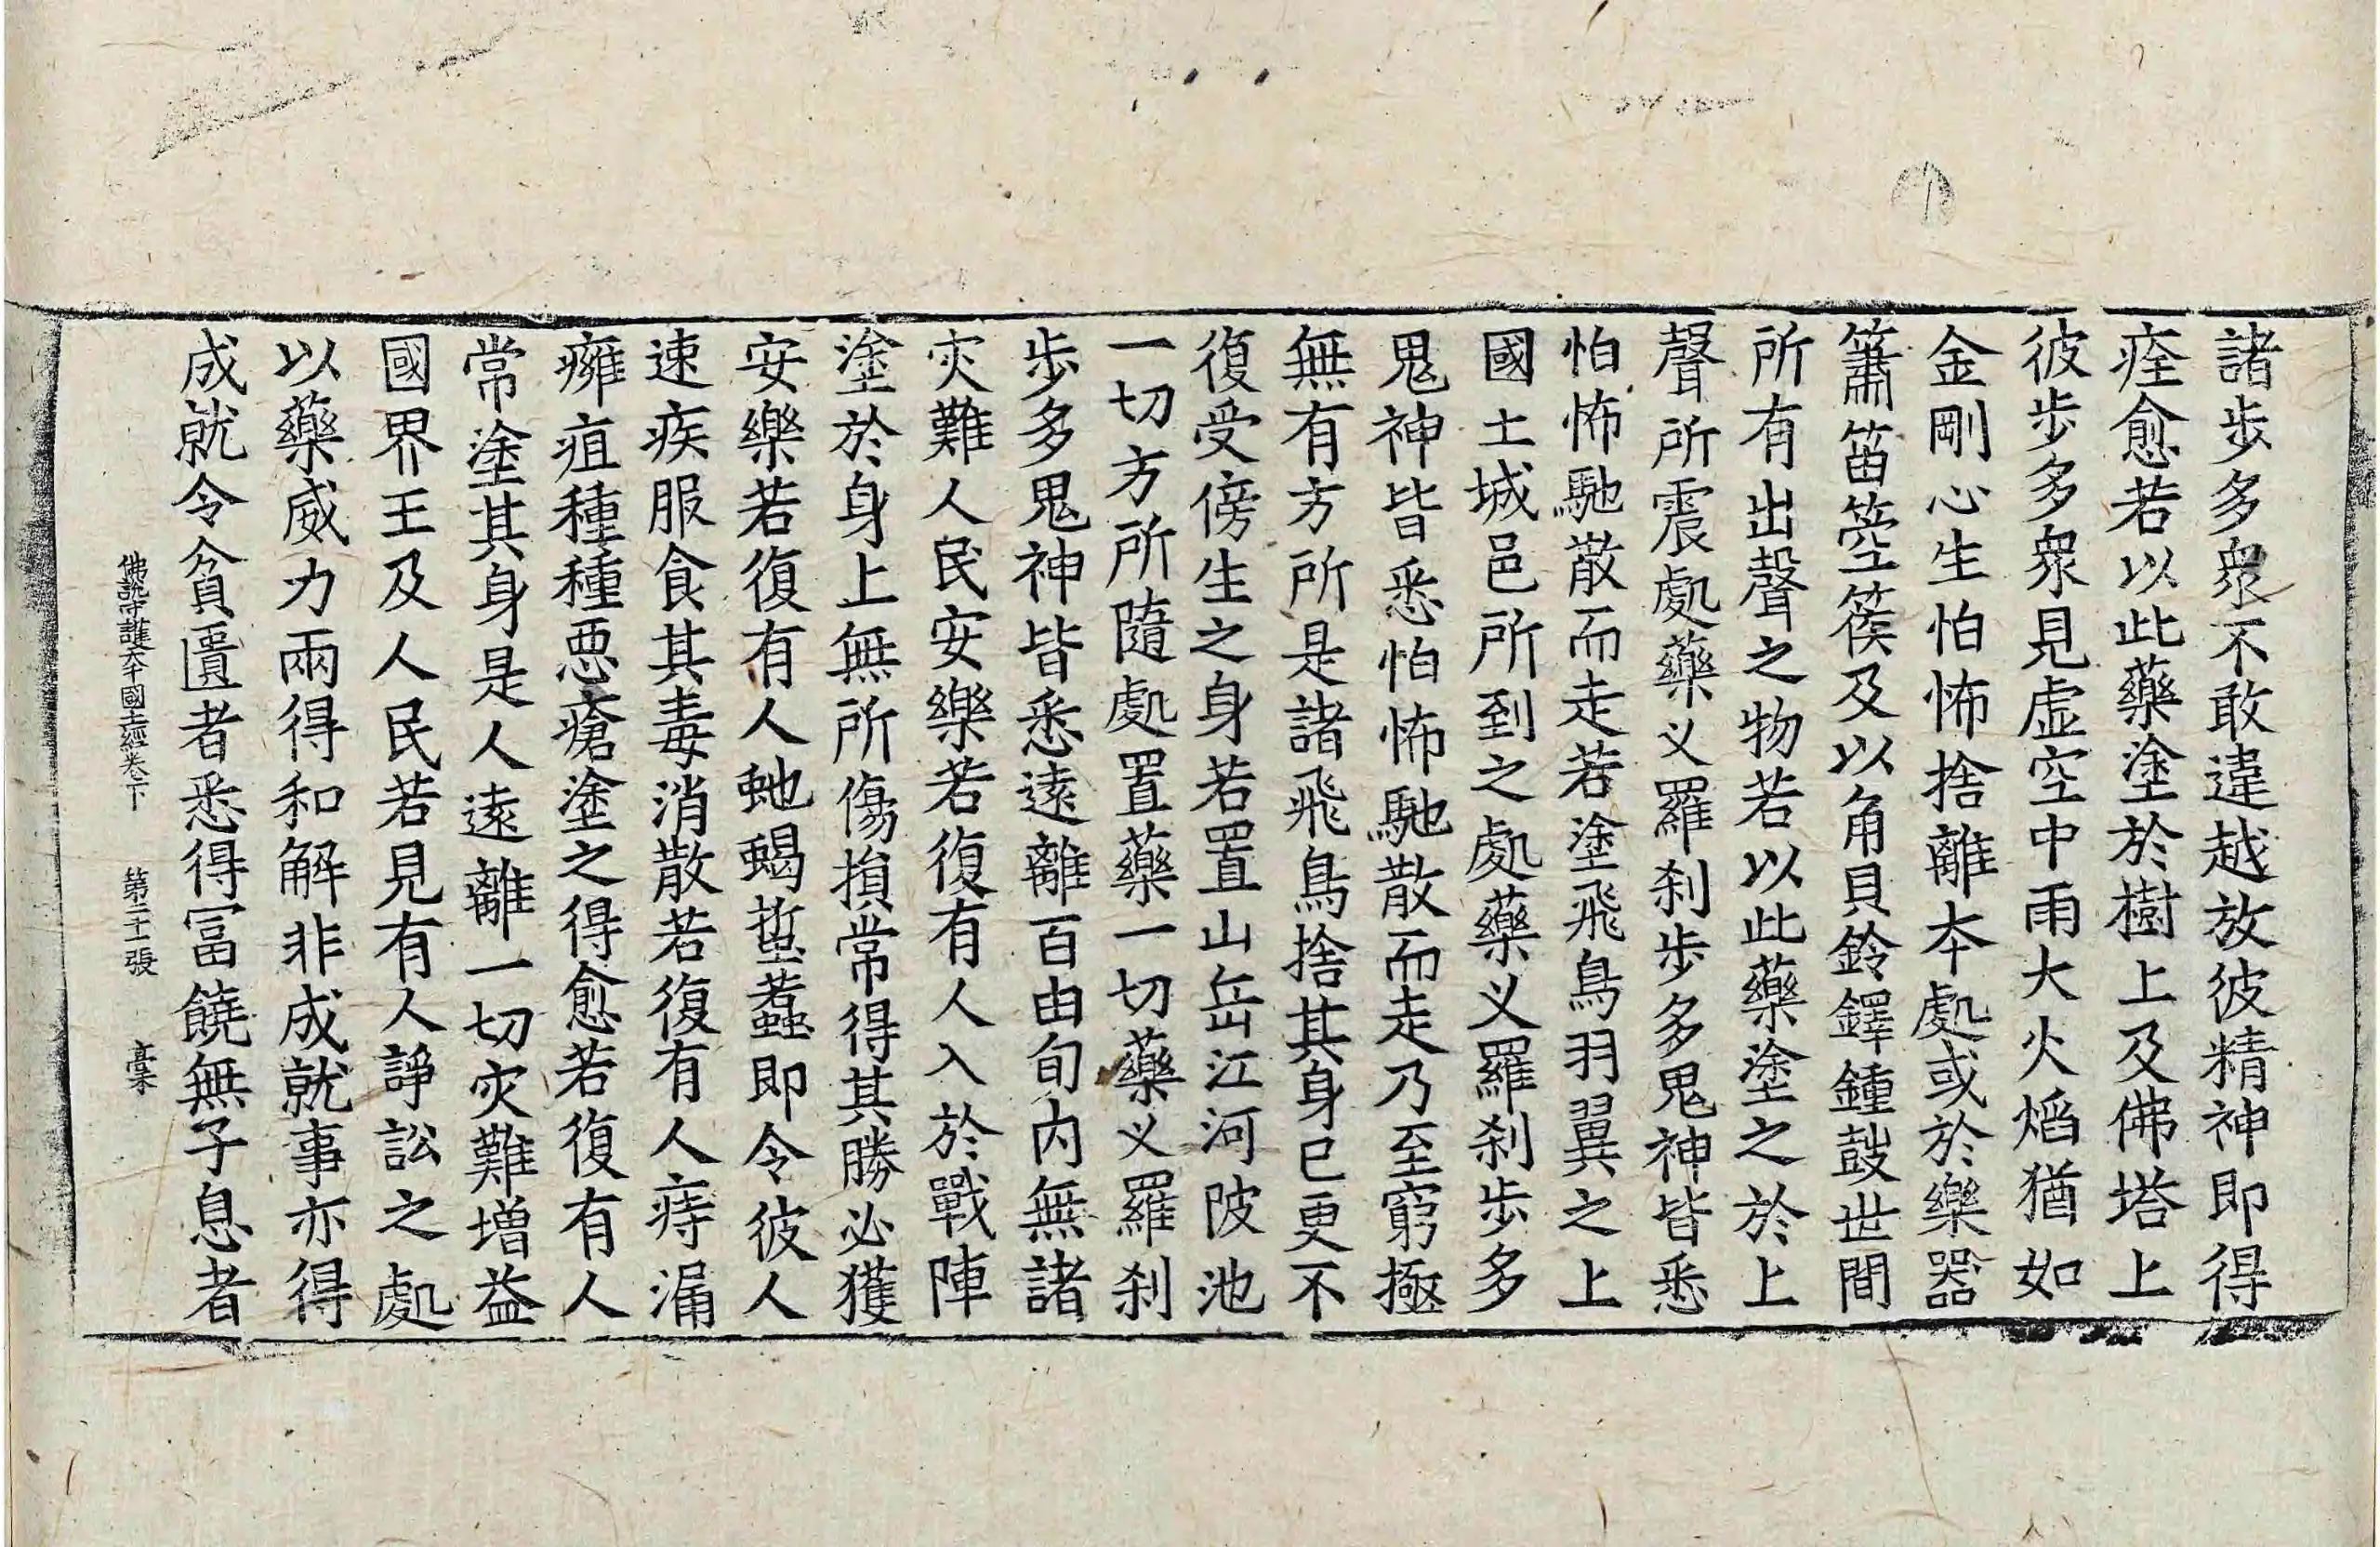 諸步多衆不敢違越放彼精神即得
痊愈若以此藥塗於樹上及佛塔上
彼步多衆見虛空中雨大火焰猶如
金剛心生怕怖捨離本處或於樂器
簫笛箜篌及以角貝鈴鐸鍾鼓世間
所有出聲之物若以此藥塗之於上
聲所震處藥义羅刹步多鬼神皆悉
怕怖馳散而走若塗飛鳥羽翼之上
國土城邑所到之處藥义羅刹步多
鬼神皆悉怕怖馳散而走乃至窮極
無有方所是諸飛鳥捨其身已更不
復受傍生之身若置山岳江河陂池
一切方所隨處置藥一切藥义羅刹
步多鬼神皆悉遠離百由旬内無諸
灾難人民安樂若復有人入於戰陣
塗於身上無所傷損常得其勝必獲
安樂若復有人虵蝎蜇蠚即令彼人
速疾服食其毒消散若復有人痔漏
癰疽種種惡瘡塗之得愈若復有人
常塗其身是人遠離一切灾難增益
國界王及人民若見有人諍訟之處
以藥威力兩得和解非成就事亦得
成就令貧匱者悉得冨饒無子息者
佛說守護大千國土經卷下 第二十一張 槀